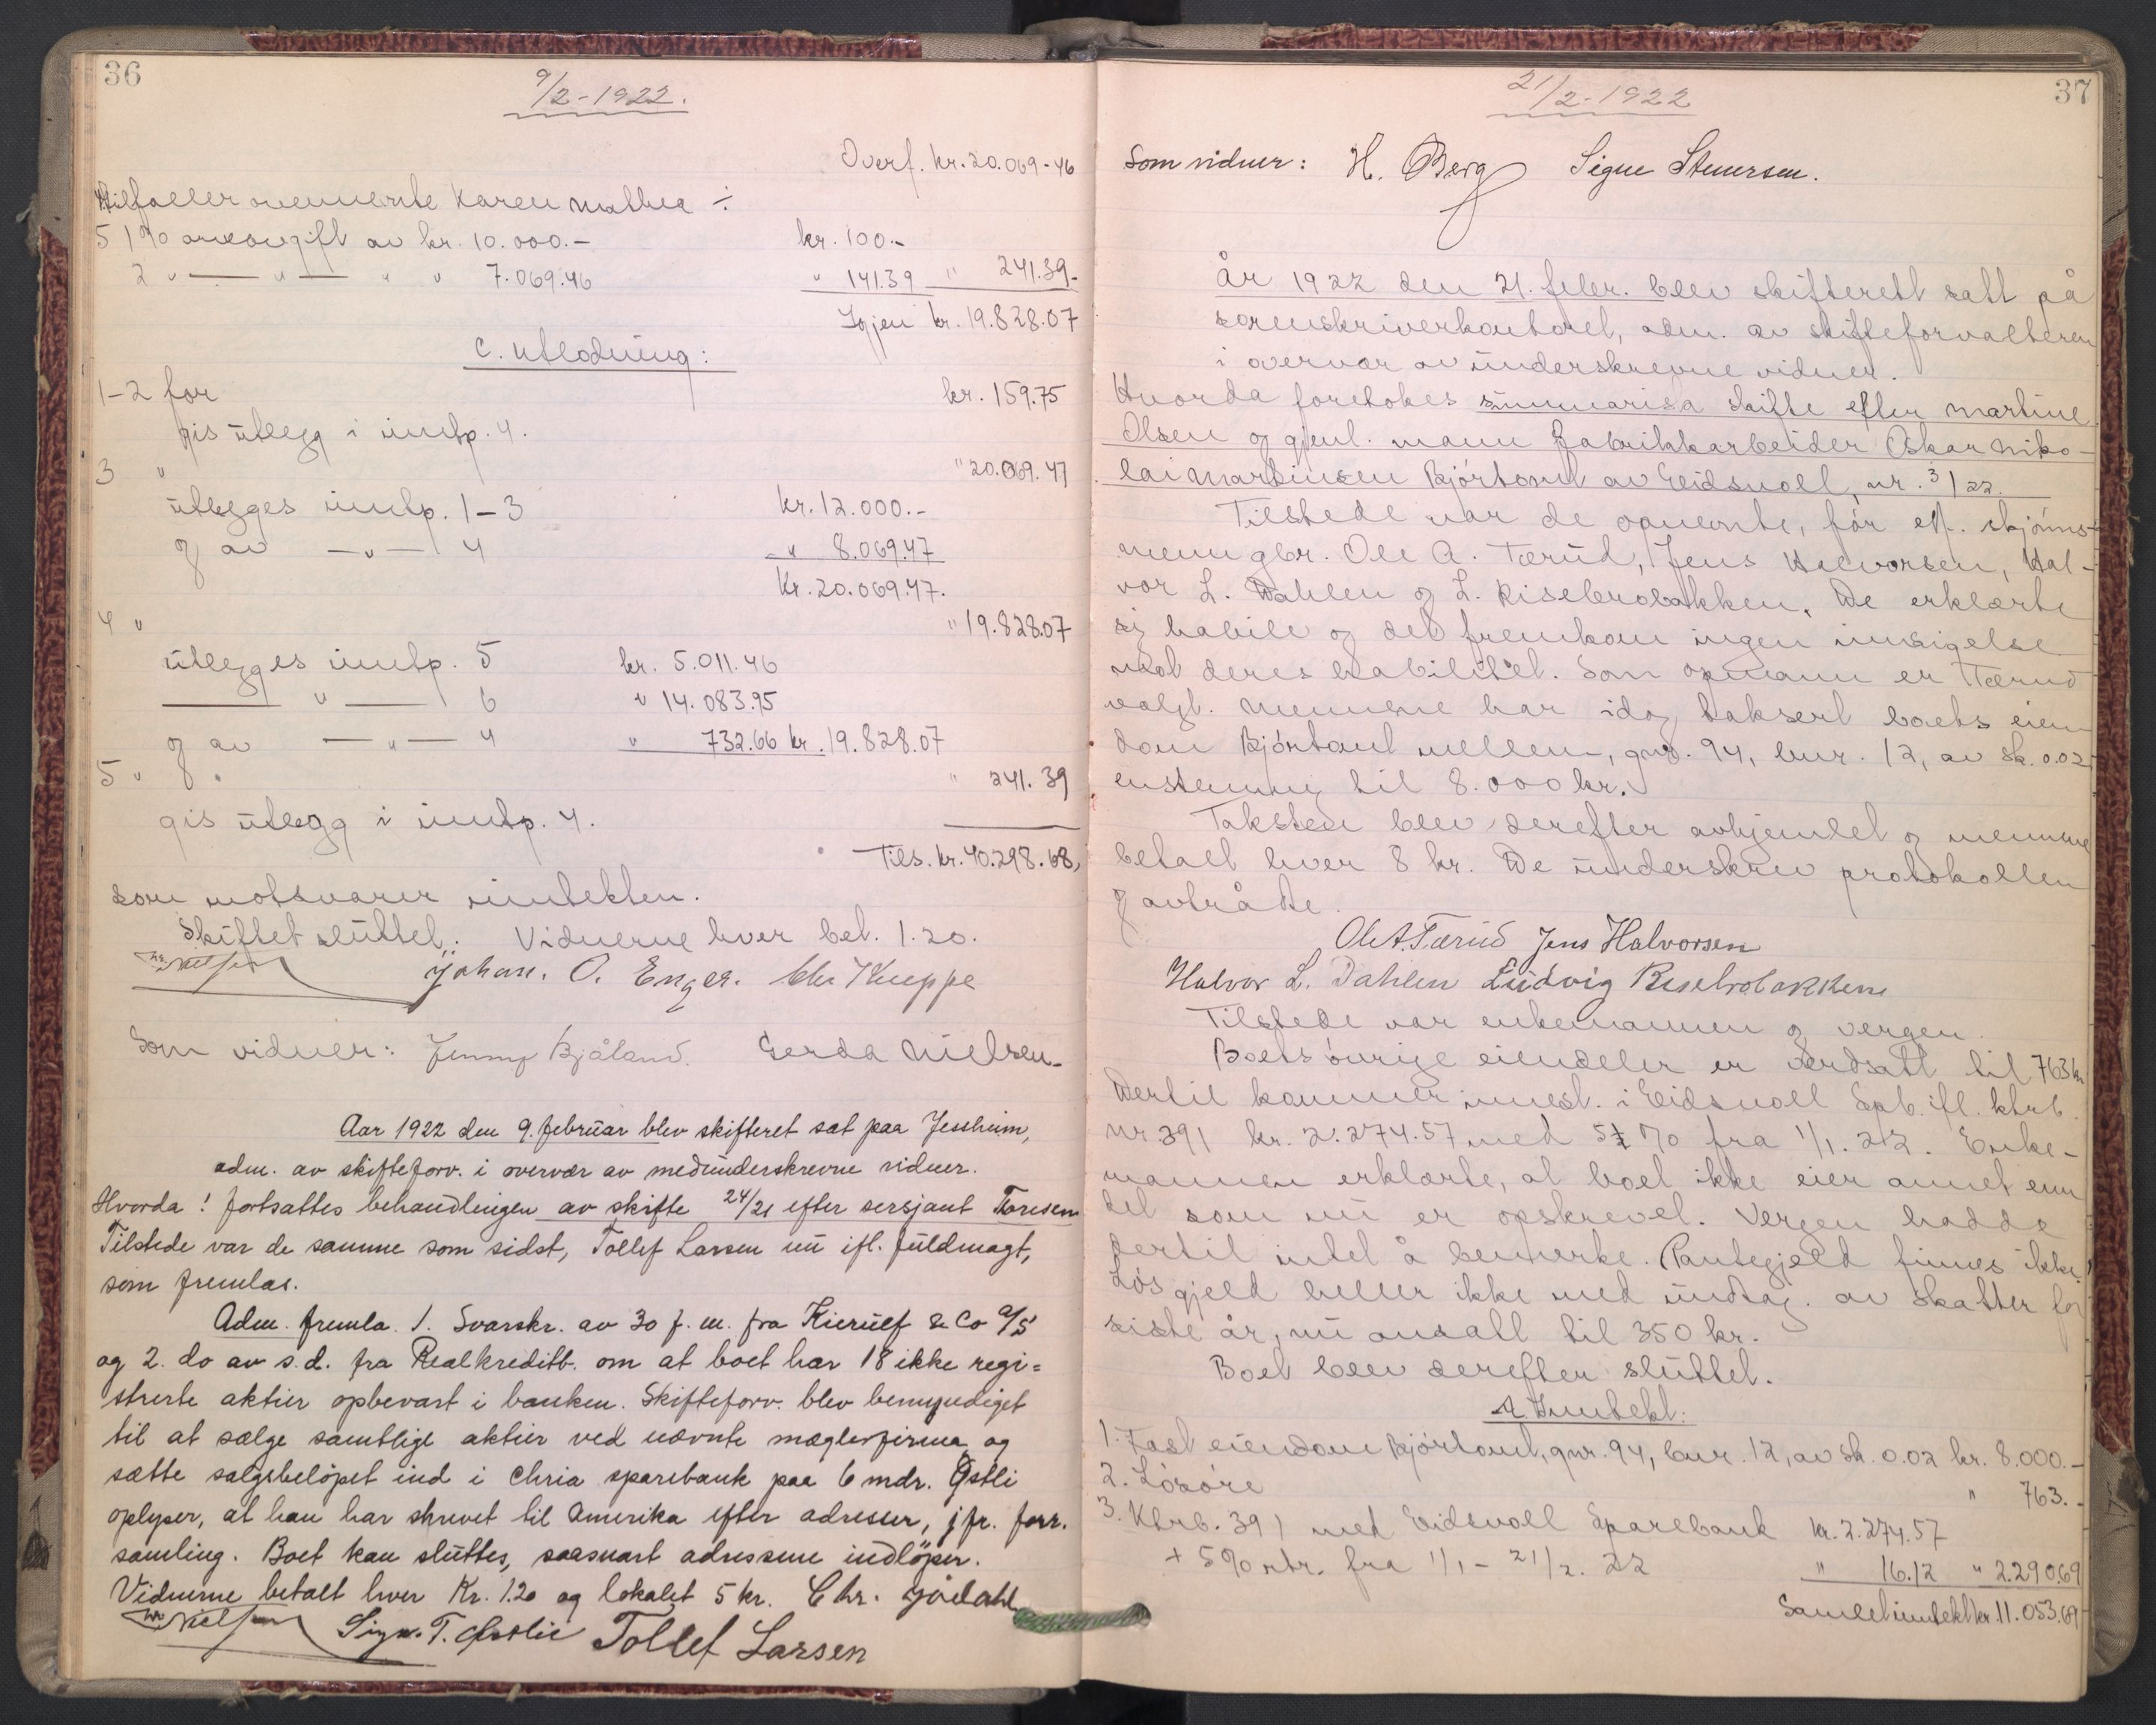 36
9/2-1922.
Overf. kr. 20.069-46
tilfaller ovennevnte Karen Mathea ÷
5 1% arveavgift av kr. 10.000.- kr. 100.-
2 " — " — " " 7.069.46 " 141.39 " 241.39-
Igjen kr. 19.828.07
C. Utlodning:
1-2 for kr. 159.75
gis utlegg i inntp. 4.
3 " " 20.069.47
utlegges inntp. 1-3 kr. 12.000.-
og av — " — 4 " 8.069.47
Kr. 20.069.47.
4 " " 19.828.07
utlegges inntp. 5 kr. 5.011.46
— " — 6 " 14.083.95
og av — " — 4 " 732.66 kr. 19.828.07
5 " " 241.39
gis utlegg i inntp. 4.
Tils. kr. 40.298.68,
som motsvarer inntekten.
Skiftet sluttet. Vidnerne hver bet. 1.20.
Johan. O. Enger. Chr Kueppe
Som vidner: Jenny Bjåland. Gerda Nielsen-
Aar 1922 den 9. februar blev skifteret sat paa Jessheim,
adm. av skifteforv. i overvær av medunderskrevne vidner.
Hvorda! fortsattes behandlingen av skifte 24/21 efter sersjant Toresen
Tilstede var de samme som sidst, Tollef Larsen nu ifl. fuldmagt,
som fremlas.
Adm. fremla 1. Svarskr. av 30 f. m. fra Kierulf & Co A/S
og 2. do av s.d. fra Realkreditb. om at boet har 18 ikke regi=
strerte aktier opbevart i banken. Skifteforv. blev bemyndiget
til at sælge samtlige aktier ved nævnte mæglerfirma og
sætte salgsbeløpet ind i Chria sparebank paa 6 mdr. Østli
oplyser, at han har skrevet til Amerika efter adresser, jfr. forr.
samling. Boet kan sluttes, saasnart adressene indløper.
Vidnerne betalt hver Kr. 1.20 og lokalet 5 kr. Chr. Jødahl
Sign. T. Østlie Tollef Larsen
21/2-1922
37
Som vidner: H. Berg Signe Stenersen.
År 1922 den 21. febr. blev skifterett satt på
sorenskriverkontoret, adm. av skifteforvalteren
i overvær av underskrevne vidner.
Hvorda foretokes summarisk skifte efter Martine
Olsen og gjenl. mann fabrikkarbeider Oskar Niko-
lai Martinsen Bjørtomt av Eidsvoll, nr. 3/22.
Tilstede var de opnevnte, før eff. skjønns-
menn gbr. Ole A. Tærud, Jens Halvorsen, Hal-
vor L. Dahlen og L. Risebrobakken. De erklærte
sig habile og det fremkom ingen innsigelse
mot deres habilitet. Som opmann er Tærud
valgt. Mennene har idag taksert boets eien
dom Bjørtomt mellem, gnr. 94, bnr. 12, av sk. 0.02
enstemmig til 8.000 kr.
Taksten blev derefter avhjemlet og mennene
betalt hver 8 kr. De underskrev protokollen
og avtrådte.
Ole A. Tærud Jens Halvorsen
Halvor L. Dahlen Ludvig Risebrobakken
Tilstede var enkemannen og vergen.
Boets øvrige eiendeler er verdsatt til 763 kr
Dertil kommer innest. i Eidsvoll Spb. ifl. ktrb.
nr. 391 kr. 2.274.57 med 5% fra 1/1. 22. Enke-
mannen erklærte, at boet ikke eier annet enn
det som nu er opskrevet. Vergen hadde
hertil intet å bemerke. Pantegjeld finnes ikke.
Løs gjeld heller ikke med undtag. av skatter for
siste år, nu ansatt til 350 kr.
Boet blev derefter sluttet.
A Inntekt:
1. Fast eiendom Bjørtomt, gnr. 94, bnr. 12, av sk. 0.02 kr. 8.000.-
2. Løsøre " 763.-
3. Ktrb. 391 med Eidsvoll Sparebank kr. 2.274.57
+ 5% rtr. fra 1/1 - 21/2. 22 " 16.12 " 2.290.69
Samlet inntekt kr. 11.053.69